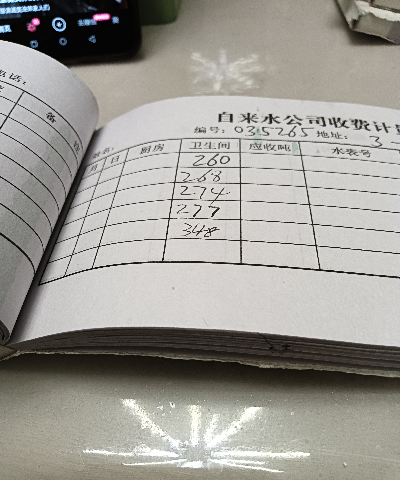 自来水公司收费计
编号: 035265 地址: 3-
姓名:
月 日 厨房 卫生间 应收吨 水表号
260
268
274
277
348
电话:
备